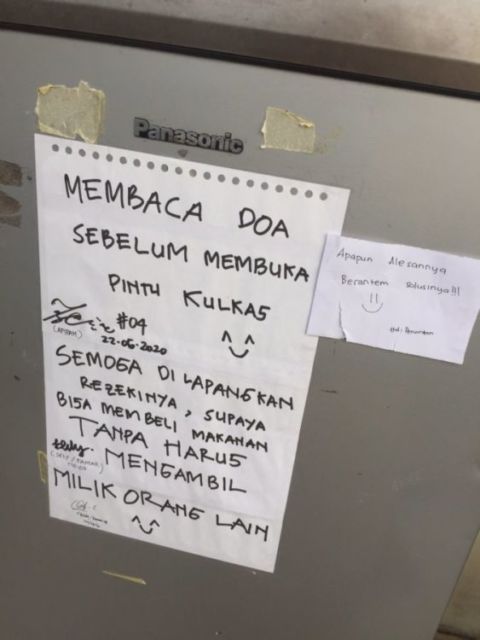 Panasonic
MEMBACA DOA
SEBELUM MEMBUKA
PINTU KULKAS
#04
22-06-2020
SEMOGA DI LAPANGKAN
REZEKINYA, SUPAYA
BISA MEMBELI MAKANAN
TANPA HARUS
MENGAMBIL
MILIK ORANG LAIN
Apapun Alesannya
Berantem Solusinya!!!